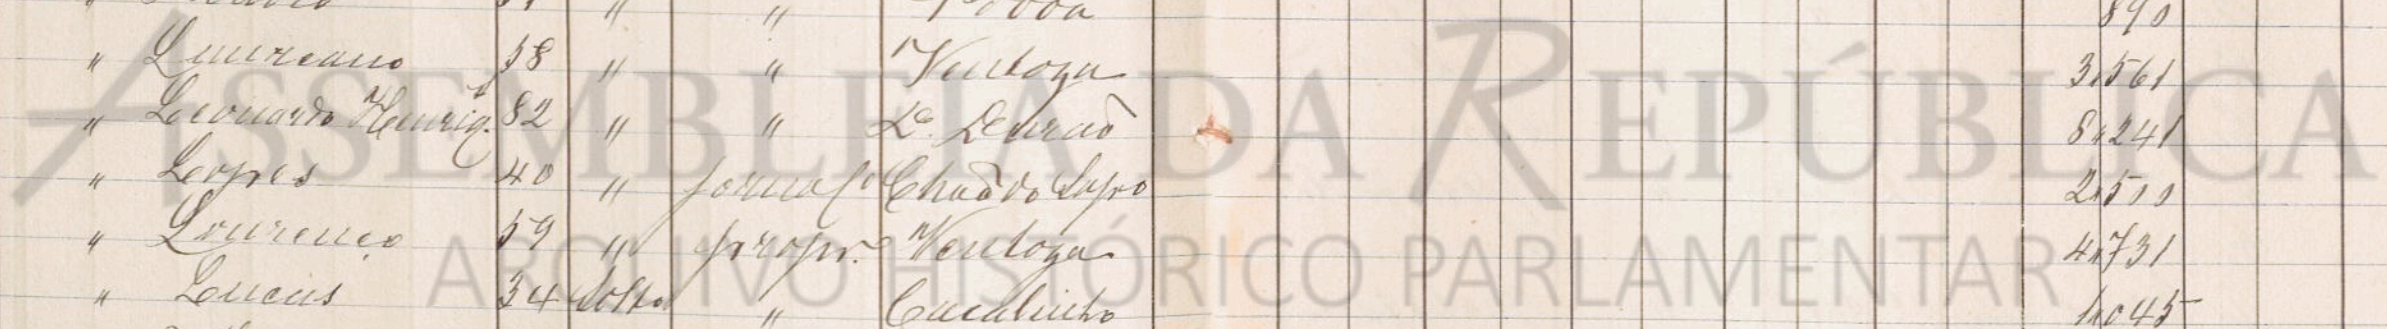 " " " 890
" Laureano 58 " " Ventoza 3,561
" Leonardo Henriq. 82 " " Lo. Durão 8,241
" Lopes 40 " jornalo Chão do Sapo 2,500
" Lourenço 59 " propr.o Ventoza 4,731
" Lucas 34 Soltro " 1,045
ASSEMBLEIA DA REPÚBLICA
ARQUIVO HISTÓRICO PARLAMENTAR